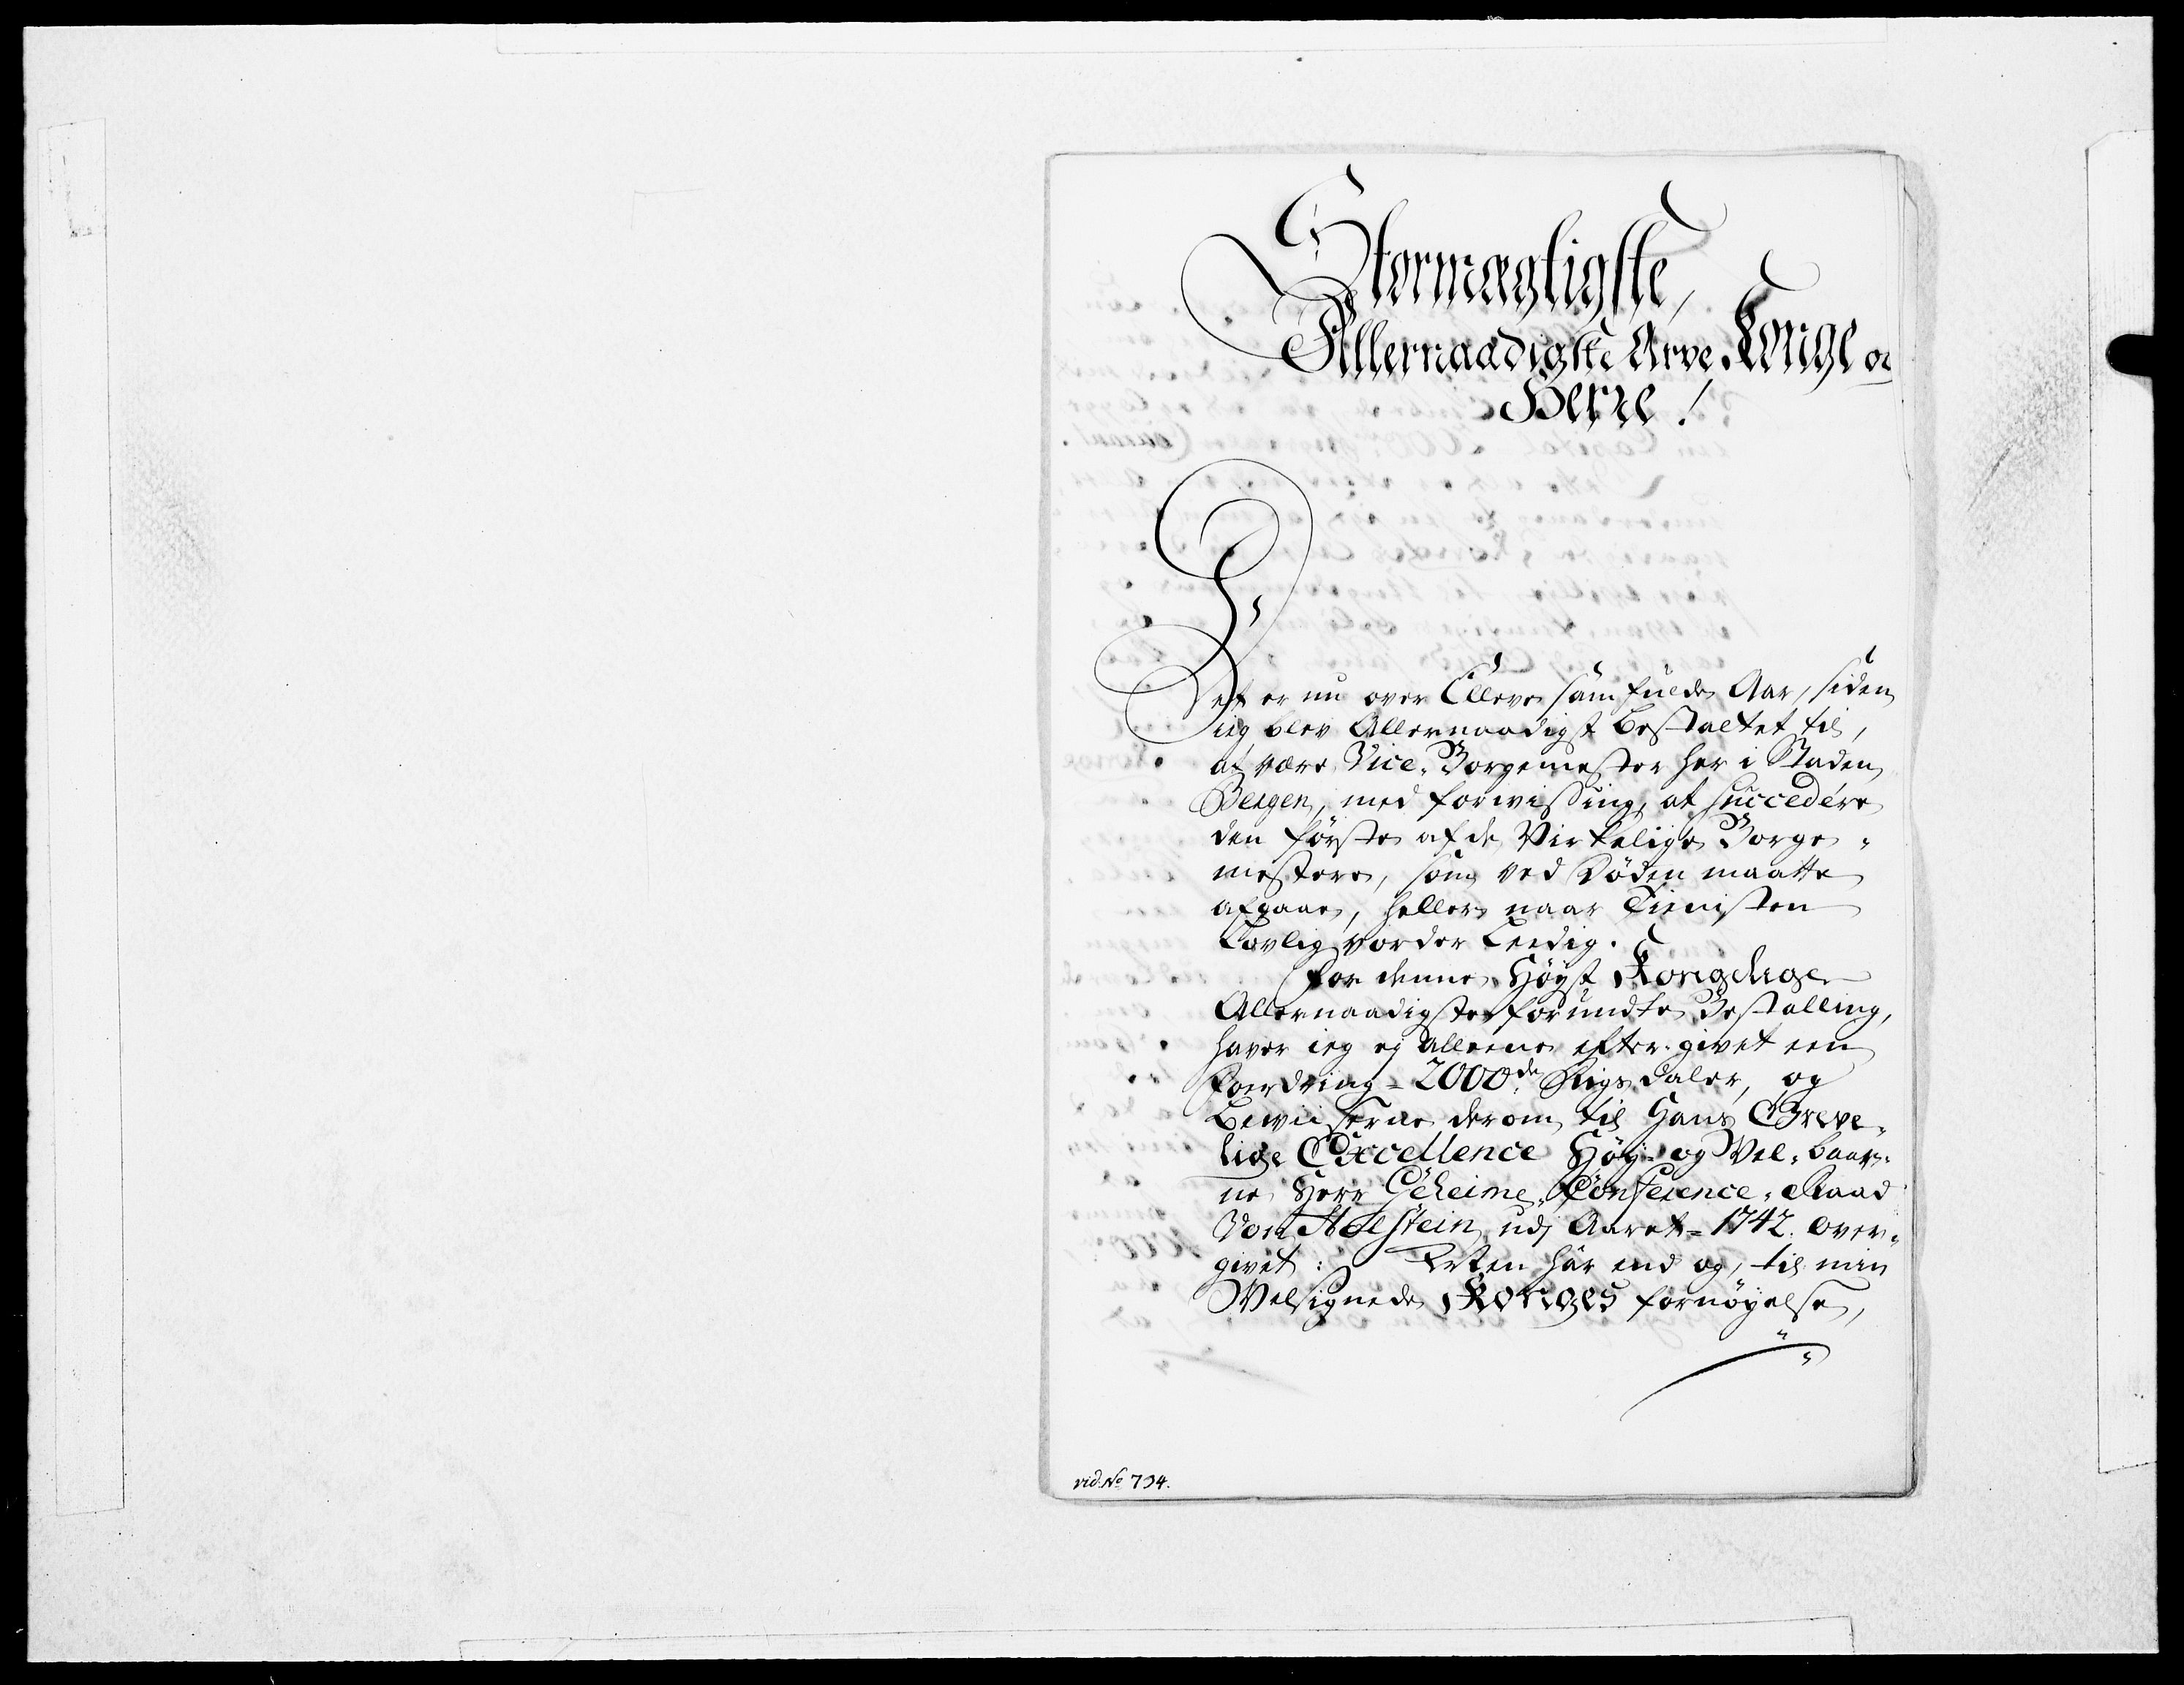 Stormægtigste,
Allernaadigste Arve-Konge og
Herre!
Det er nu over Elleve sam fulde Aar, siden
ieg blev Allernaadigst bestaltet til,
at være Vice-Borgemester her i Staden
Bergen, med forvissing, at succedére
den første af de Virkelige Borge-
mestere, som ved Døden maatte
afgaae, heller naar Tienisten
Lovlig vorder Leedig.
For denne Høyst Kongelige
Allernaadigste forundte Bestalling,
haver ieg ej alleene efter-givet een
fordring = 2000de Rigsdaler, og
beviiserne derom til Hans Greve-
lige Excellence Høy- og Vel-baar-
ne Herr Geheime-Conference-Raad
Von Holstein udj Aaret = 1742. over-
givet: Men end og, til min
Velsignede Konges fornøyelse,
vid. No 734.